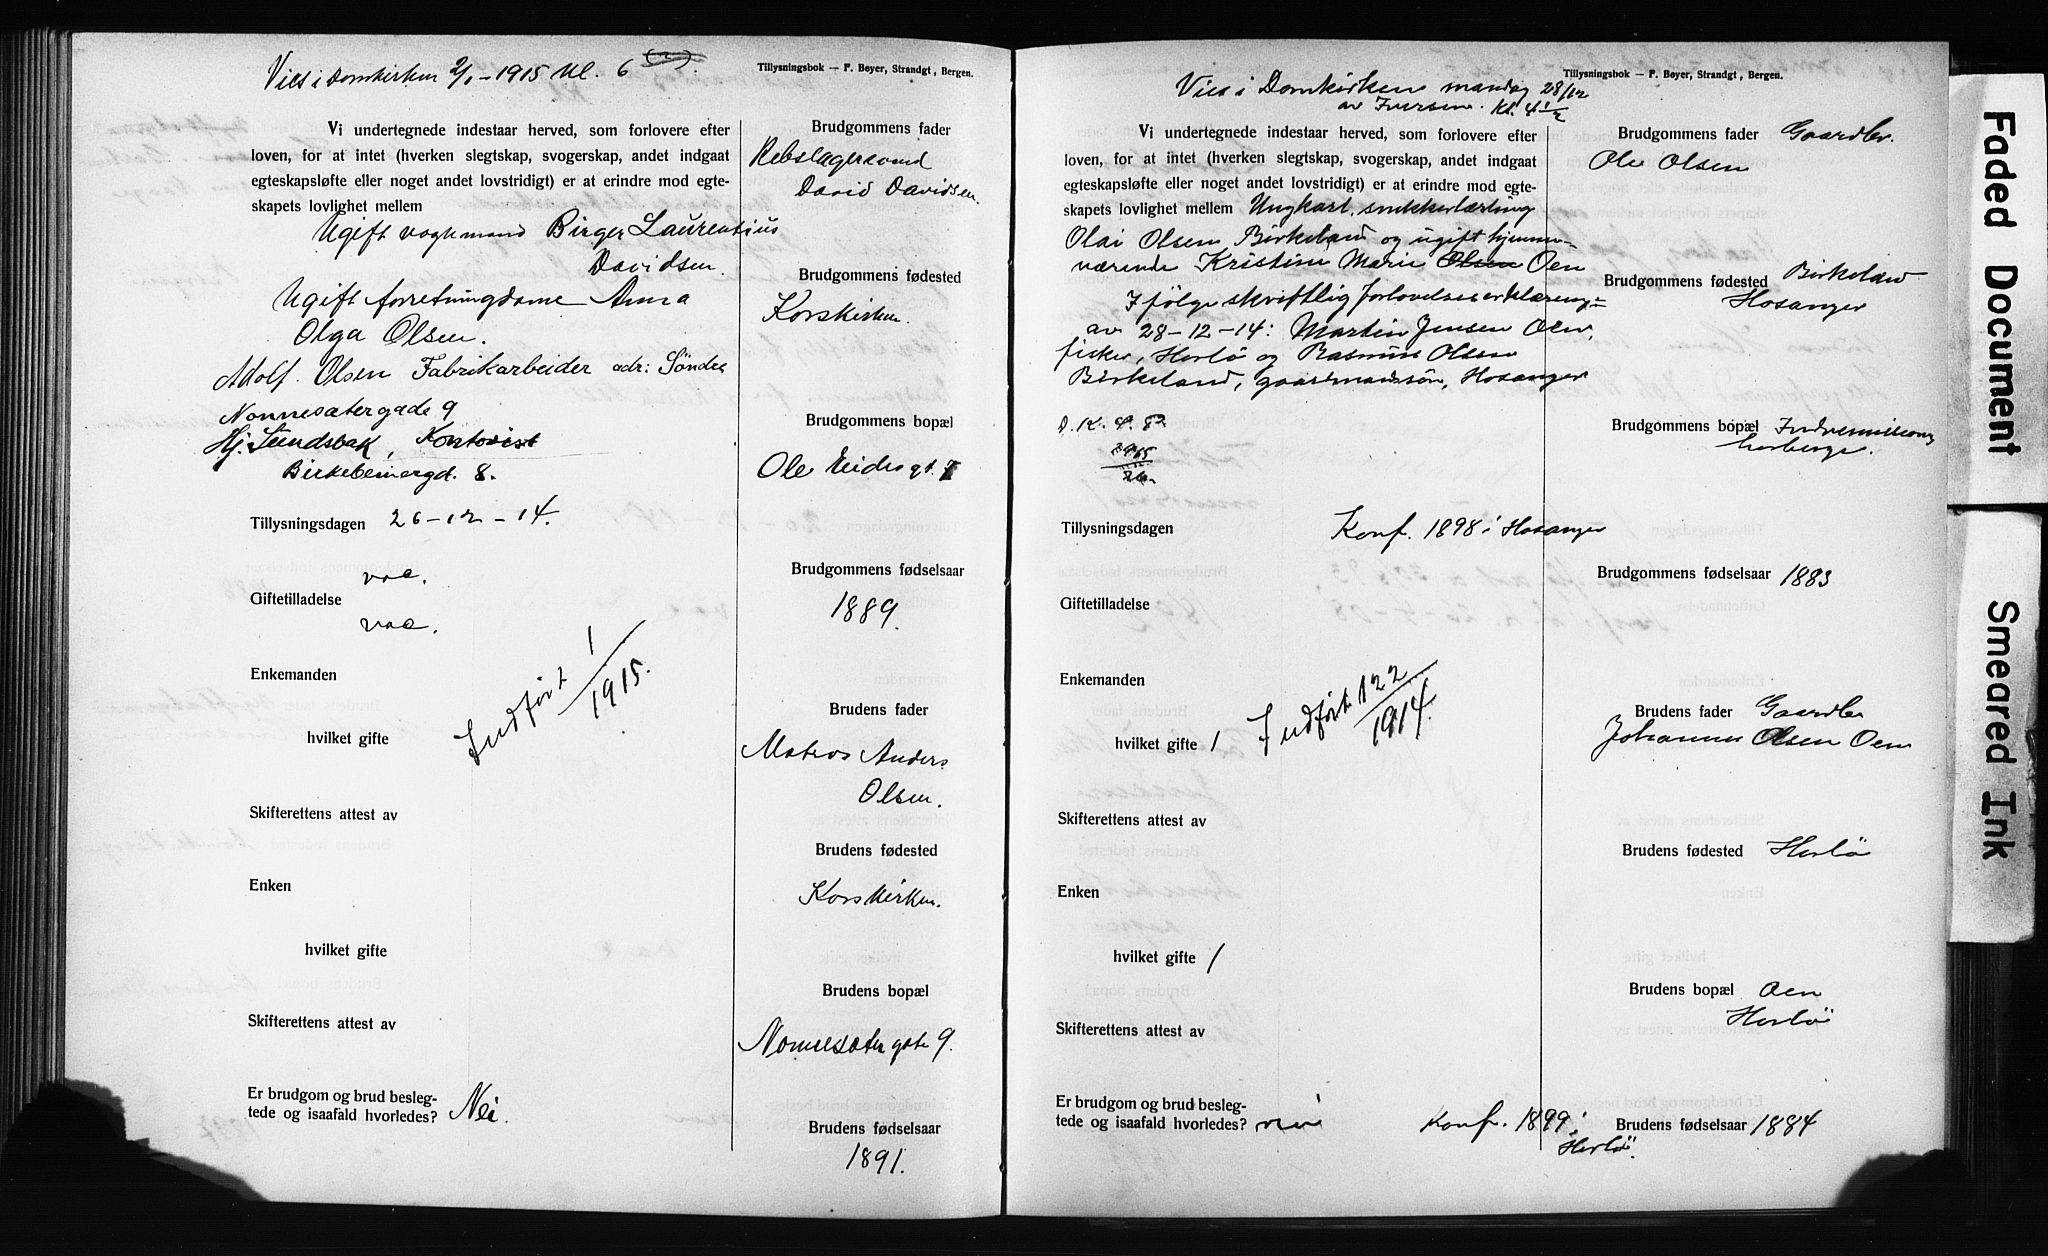 Vies i Domkirken 2/1 - 1915 kl. 6
Tillysningsbok — F. Beyer, Strandgt, Bergen.
Vi undertegnede indestaar herved, som forlovere efter
loven, for at intet (hverken slegtskap, svogerskap, andet indgaat
egteskapsløfte eller noget andet lovstridigt) er at erindre mod egte-
skapets lovlighet mellem
Ugift vognmand Birger Laurentius
Davidsen.
Ugift forretningsdame Anna
Olga Olsen.
Adolf. Olsen Fabrikarbeider adr: Söndre
Nonnesætergade 9
Hj. Sundsbak, Kontorist
Birkebeinergd. 8.
Tillysningsdagen 26-12-14.
vac.
Giftetilladelse
vac.
Enkemanden
hvilket gifte
Indført 1/1915.
Skifterettens attest av
Enken
hvilket gifte
Skifterettens attest av
Er brudgom og brud besleg-
tede og isaafald hvorledes? Nei.
Brudgommens fader
Rebslagersvend
David Davidsen.
Brudgommens fødested
Korskirken.
Brudgommens bopæl
Ole Irgensgt. 7
Brudgommens fødselsaar
1889.
Brudens fader
Matros Anders
Olsen.
Brudens fødested
Korskirken.
Brudens bopæl
Nonnesæter gate 9.
Brudens fødselsaar
1891.
Vies i Domkirken mandag 28/12
av Iversen. Kl. 4 1/2
Tillysningsbok — F. Beyer, Strandgt, Bergen.
Vi undertegnede indestaar herved, som forlovere efter
loven, for at intet (hverken slegtskap, svogerskap, andet indgaat
egteskapsløfte eller noget andet lovstridigt) er at erindre mod egte-
skapets lovlighet mellem Ungkarl, snikkerlærling
Olai Olsen Birkeland og ugift hjemme-
værende Kristine Marie Olsen Oen
Ifölge skriftlig forlovelseserklæring
av 28-12-14: Martin Jensen Oen,
fisker, Herlö og Rasmus Olsen
Birkeland, gaardmandssön, Hosanger
D. K. 4. 82
3965
26.
Tillysningsdagen
Konf. 1898 i Hosanger
Giftetilladelse
Enkemanden
hvilket gifte 1
Indført 122/1914.
Skifterettens attest av
Enken
hvilket gifte 1
Skifterettens attest av
Er brudgom og brud besleg-
tede og isaafald hvorledes? nei
Konf. 1899 i
Herlö.
Brudgommens fader Gaardbr.
Ole Olsen
Brudgommens fødested Birkeland
Hosanger
Brudgommens bopæl Indremissions
herberge.
Brudgommens fødselsaar 1883
Brudens fader Gaardbr
Johannes Olsen Oen
Brudens fødested Herlö
Brudens bopæl Oen
Herlö
Brudens fødselsaar 1884
Faded Document
Smeared Ink